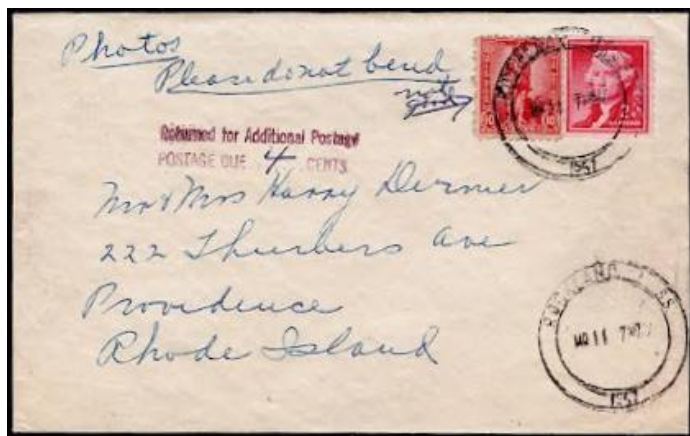 Photos
Please do not bend
not
good
Returned for Additional Postage
POSTAGE DUE 4 CENTS
Mr & Mrs Harry Dermer
222 Thurbers Ave
Providence
Rhode Island
1957
ROCKLAND MASS
MR 11 7
1957